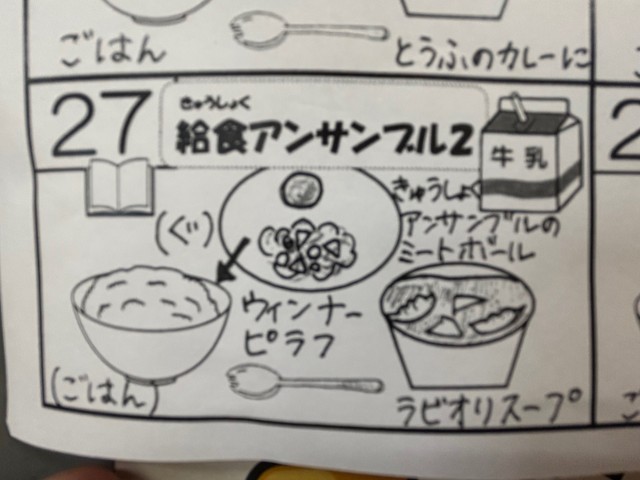 ごはん
とうふのカレーに
27
きゅうしょく
給食アンサンブル2
牛乳
きゅうしょく
アンサンブルの
ミートボール
(ぐ)
ウィンナー
ピラフ
(ごはん)
ラビオリスープ